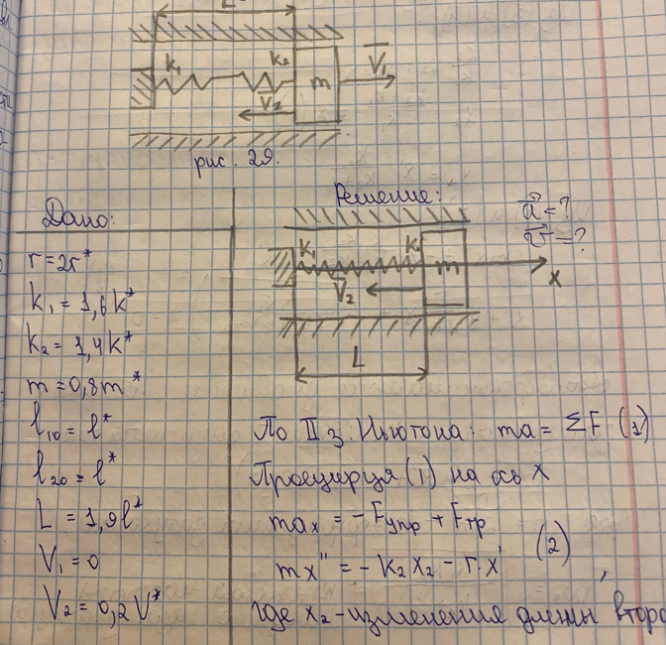 L
k₁ k₂ m V₁
V₂
рис. 29.
Дано:
r = 2r*
k₁ = 1,6k*
k₂ = 1,4k*
m = 0,8m*
l₁₀ = l*
l₂₀ = l*
L = 1,9l*
V₁ = 0
V₂ = 0,2V*
Решение:
a = ?
v = ?
k₁ k₂ m
V₂
x
L
По II з. Ньютона: ma = ΣF (1)
Проецируя (1) на ось X
maₓ = -Fупр + Fтр
mx" = -k₂x₂ - r·x' (2)
где x₂ - изменение длины второ